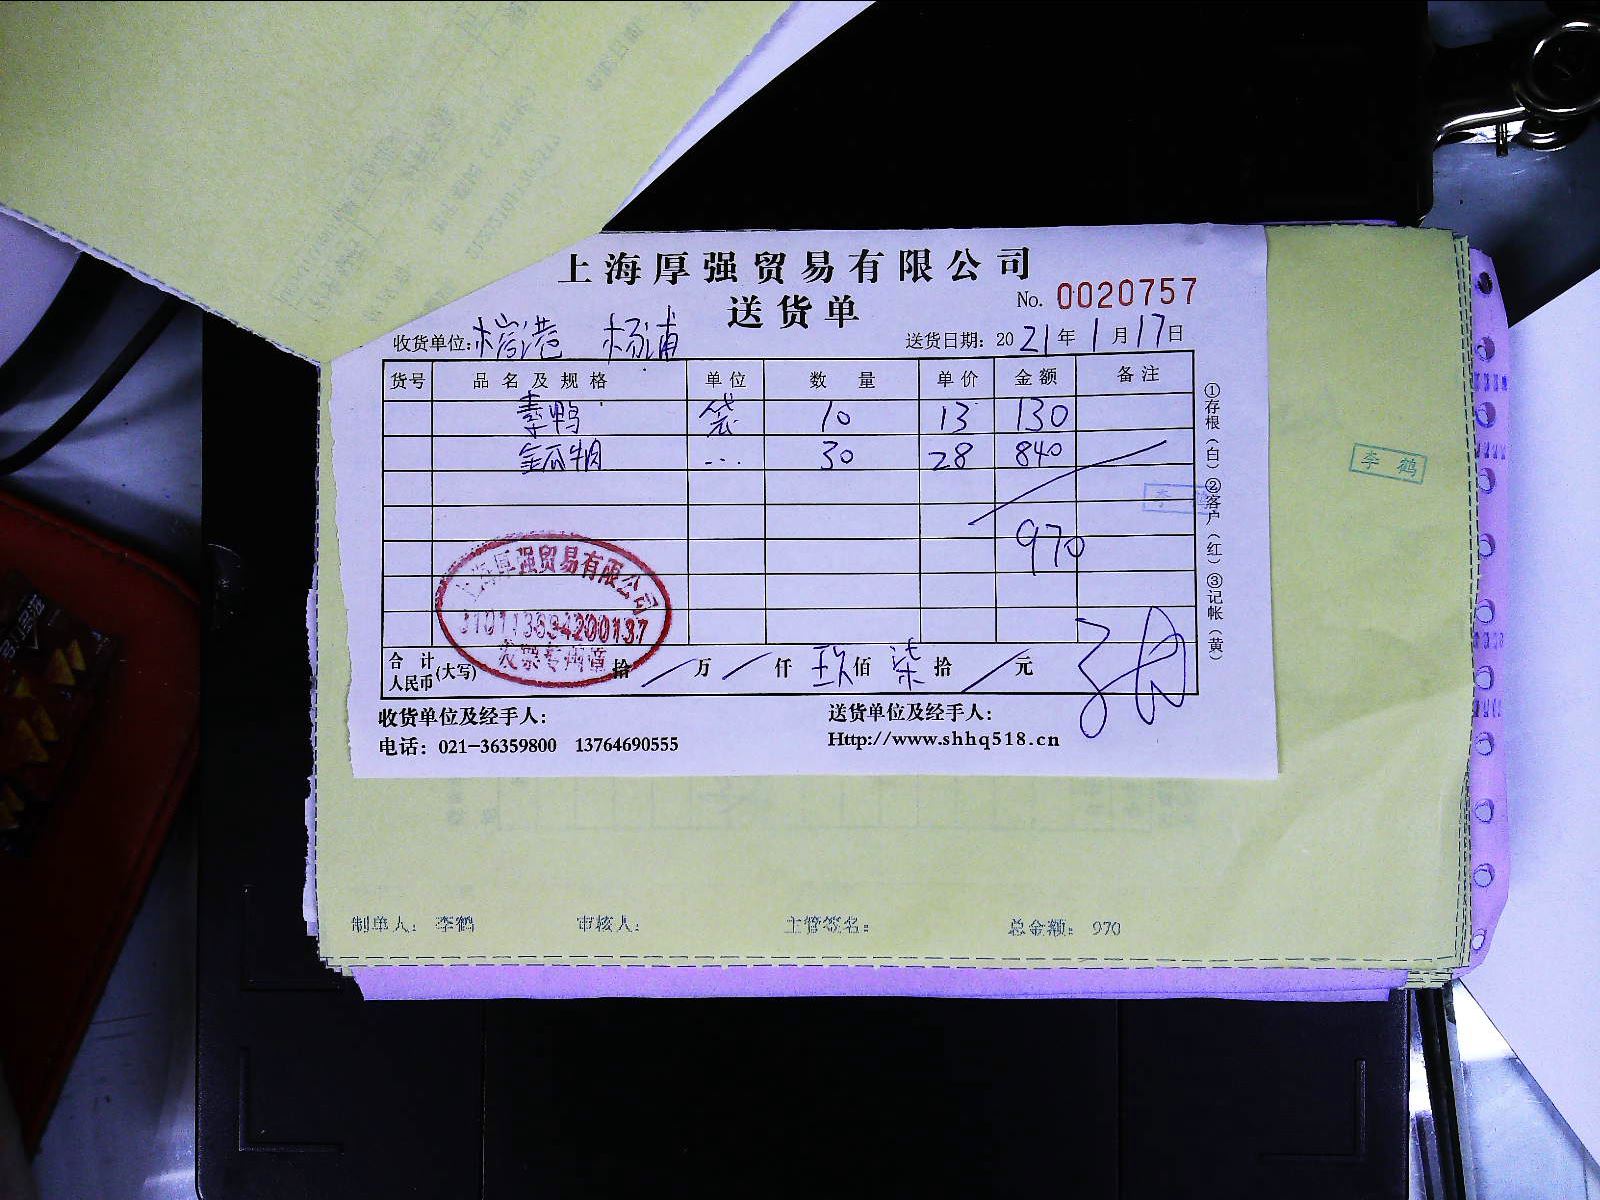 上海厚强贸易有限公司
送货单
No. 0020757
收货单位: 杨浦
送货日期: 2021年1月17日
货号 品名及规格 单位 数量 单价 金额 备注
素鸭 袋 10 13 130
金瓜 30 28 840
970
合计人民币(大写) 拾 / 万 / 仟 玖佰 柒拾 / 元
收货单位及经手人:
送货单位及经手人:
电话: 021-36359800 13764690555
Http://www.shhq518.cn
①存根(白)②客户(红)③记帐(黄)
上海厚强贸易有限公司
发票专用章
李鹤
制单人: 李鹤 审核人: 主管签名: 总金额: 970